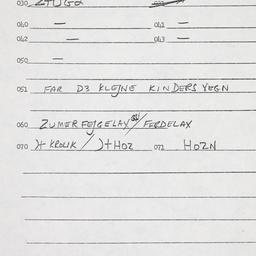 030 ZTUGA
040 — 041 —
042 — 043 —
050 —
051 FAR D3 KLEJNE KINDERS VEGN
060 ZUMERFEJGELAX / FERDELAX
070 )+ KROLIK / )+ HOZ 071 HOZN